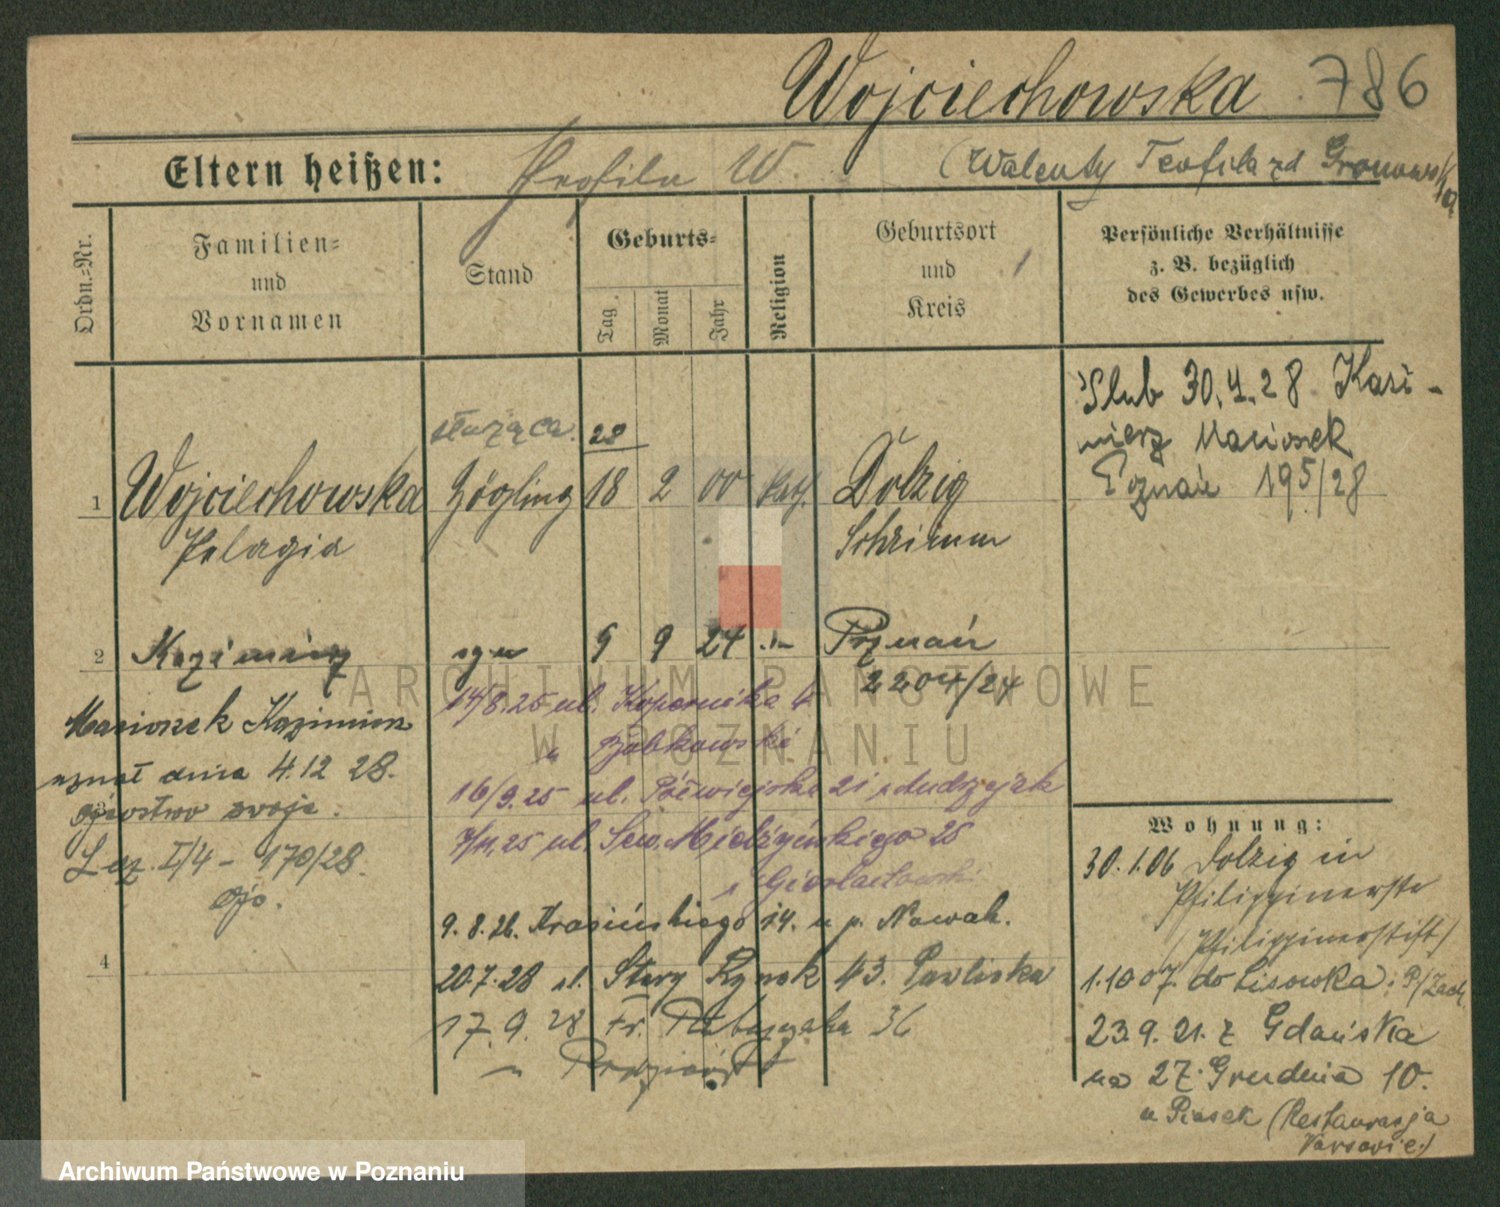 Wojciechowska 786
Eltern heißen:
W. (Walenty Teofila zd Gronowska
Ordn.-Nr.
Familien-
und
Vornamen
Stand
Geburts-
Tag
Monat
Jahr
Religion
Geburtsort
und
Kreis
Persönliche Verhältnisse
z. B. bezüglich
des Gewerbes usw.
Ślub 30.4.28 Kazi-
mierz Maciosek
Poznań 195/28
służąca. 28
1 Wojciechowska Zögling 18 2 00 kath. Dolzig
Pelagia Schrimm
2 Kazimierz syn 5 9 24 Poznań
2204/24
Maciosek Kazimierz
uznał dnia 4.12 28.
ojcostwo swoje.
3
L. cz. I/4 - 170/28.
4
14/8.25 ul. Kopernika 4
u Bobkowski
16/9.25 ul. Półwiejska 21 Andrzejak
7/11.25 ul. Sew. Mielżyńskiego 25
9.8.26. Krasińskiego 14. u p. Nowak.
20.7.28 ul. Stary Rynek 43. Pawlicka
17.9.28 Fr. Ratajczaka 36
Wohnung:
30.1.06 Dolzig in
Philippinerstr
(Philippinerstift)
1.10 07. do Lisowka:
23.9.21. z Gdańska
na 27 Grudnia 10.
u Piasek (Restauracja
Varsovie.)
ARCHIWUM PAŃSTWOWE
W POZNANIU
Archiwum Państwowe w Poznaniu